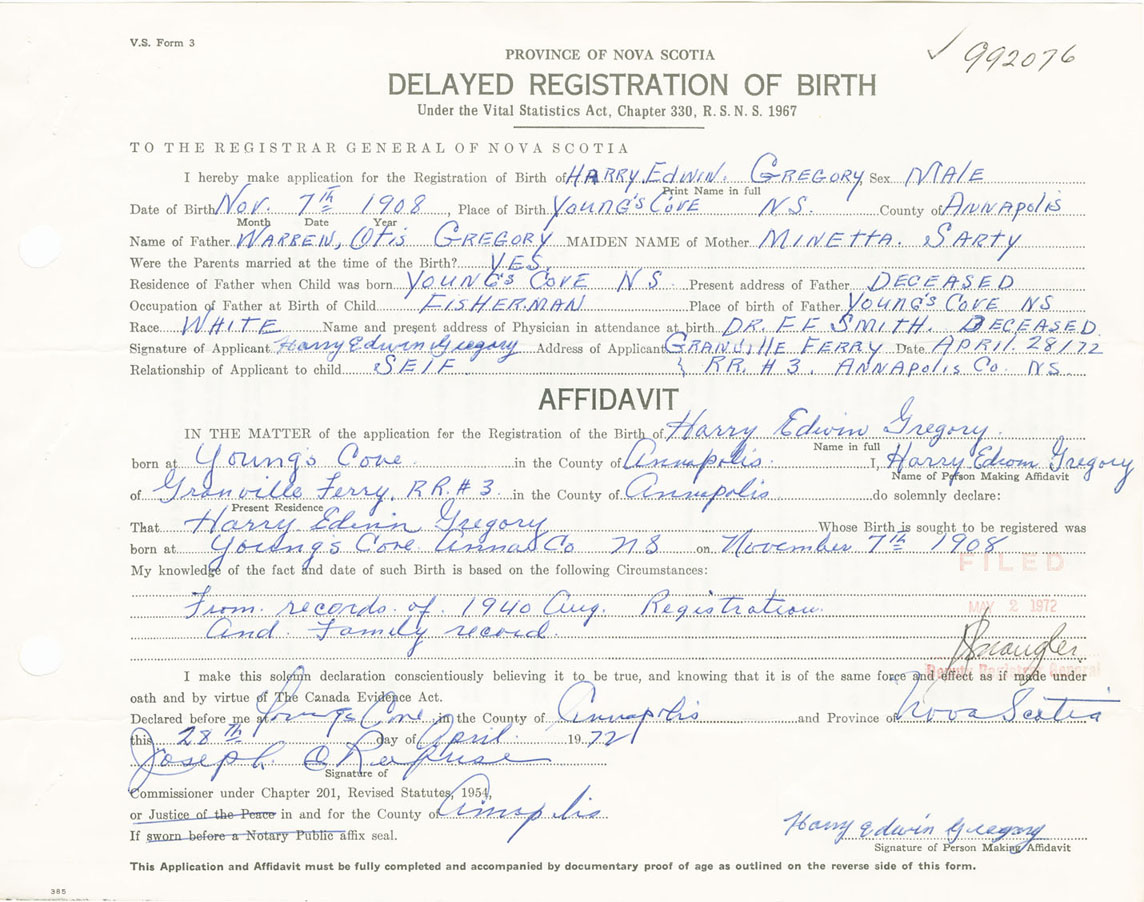 V.S. Form 3
✓ 992076
PROVINCE OF NOVA SCOTIA
DELAYED REGISTRATION OF BIRTH
Under the Vital Statistics Act, Chapter 330, R. S. N. S. 1967
TO THE REGISTRAR GENERAL OF NOVA SCOTIA
I hereby make application for the Registration of Birth of HARRY EDWIN. GREGORY Sex MALE
Print Name in full
Date of Birth Nov. 7th 1908, Place of Birth YOUNG'S COVE N.S. County of ANNAPOLIS
Month Date Year
Name of Father WARREN, OTIS GREGORY MAIDEN NAME of Mother MINETTA. SARTY
Were the Parents married at the time of the Birth? YES.
Residence of Father when Child was born YOUNG'S COVE N S. Present address of Father DECEASED
Occupation of Father at Birth of Child FISHERMAN Place of birth of Father YOUNG'S COVE NS
Race WHITE Name and present address of Physician in attendance at birth DR. F.F SMITH. DECEASED.
Signature of Applicant Harry Edwin Gregory Address of Applicant GRANVILLE FERRY Date APRIL. 28/72
Relationship of Applicant to child SELF } RR. #3. ANNAPOLIS CO. NS.
AFFIDAVIT
IN THE MATTER of the application for the Registration of the Birth of Harry Edwin Gregory.
Name in full
born at Young's Cove in the County of Annapolis. I, Harry Edwin Gregory
Name of Person Making Affidavit
of Granville Ferry, R.R.#3 in the County of Annapolis do solemnly declare:
Present Residence
That Harry Edwin Gregory Whose Birth is sought to be registered was
born at Young's Cove Anna Co NS on November 7th 1908
FILED
My knowledge of the fact and date of such Birth is based on the following Circumstances:
From records of 1940 Aug. Registration.
MAY 2 1972
And Family record.
Deputy Registrar General
I make this solemn declaration conscientiously believing it to be true, and knowing that it is of the same force and effect as if made under
oath and by virtue of The Canada Evidence Act.
Declared before me at Young's Cove in the County of Annapolis and Province of Nova Scotia
this 28th day of April 1972
Joseph
Signature of
Commissioner under Chapter 201, Revised Statutes, 1954,
or Justice of the Peace in and for the County of Annapolis
If sworn before a Notary Public affix seal.
Harry Edwin Gregory
Signature of Person Making Affidavit
This Application and Affidavit must be fully completed and accompanied by documentary proof of age as outlined on the reverse side of this form.
385